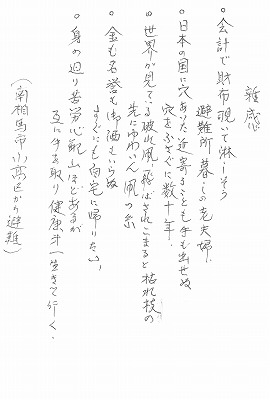 雑感
○会計で財布覗いて淋しそう
避難所暮しの老夫婦.
○日本の国に穴あいた近寄ることも手も出せぬ
穴をふさぐに数十年.
○世界が見てる破れ凧飛ばされこまると枯れ枝の
先にゆわいん凧の糸
○金も名誉も御酒もいらぬ
今すぐにも自宅に帰りたい,
○身の廻り苦労心配山ほどあるが
互に手を取り健康斗一生きて行く.
(南相馬市小高区から避難)